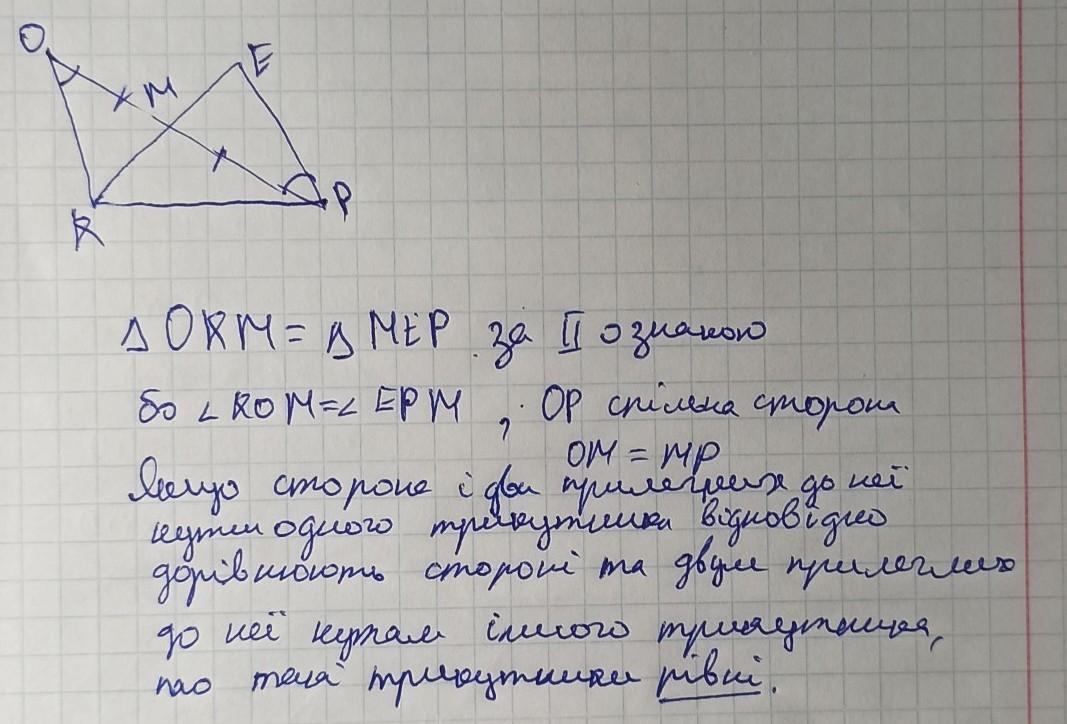 O
E
M
R
P
Δ ORM = Δ MEP за II ознакою
бо ∠ ROM = ∠ EPM , OP спільна сторона
OM = MP
Якщо сторона і два прилеглих до неї
кути одного трикутника відповідно
дорівнюють стороні та двум прилеглих
до неї кутам іншого трикутника,
то такі трикутники рівні.